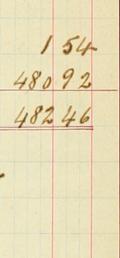 1 54
480 92
482 46